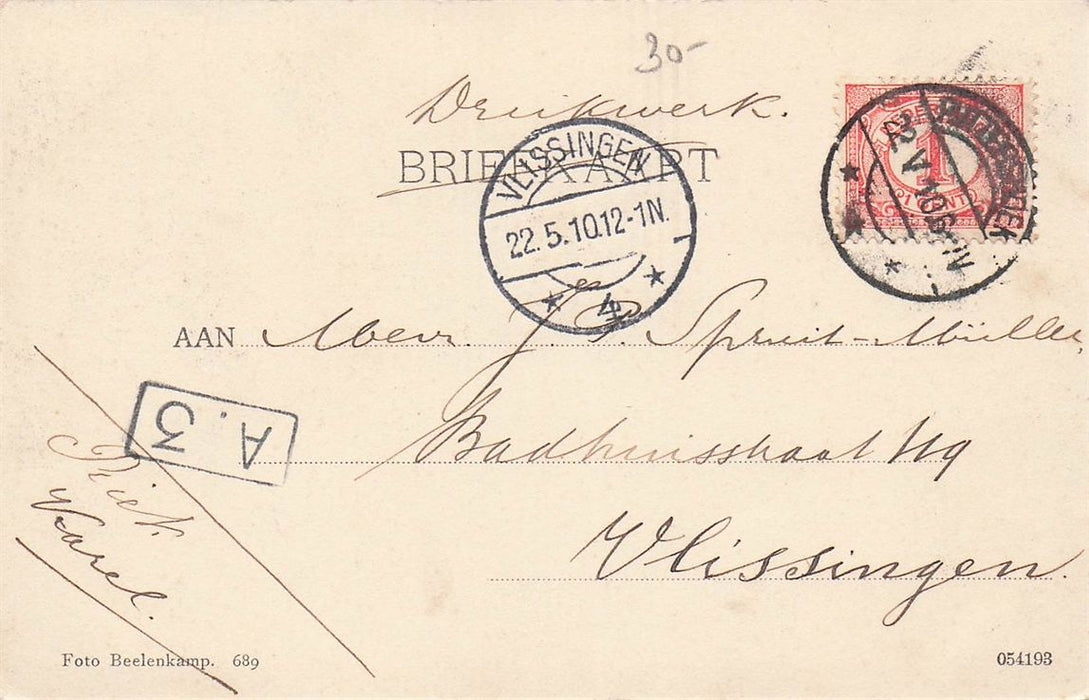 30-
Drukwerk.
BRIEFKAART
NEDERLAND
1
CENT
VLISSINGEN
22.5.10.12-1N.
4
AAN Mevr. J. P. Spruit-Müller,
A.3
Badhuisstraat 119
Vlissingen.
Riek
Karel.
Foto Beelenkamp. 689
054193